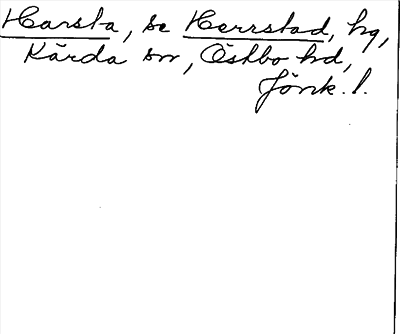 Harsta, se Herrstad, hg,
Kärda sn, Östbo hd,
Jönk. l.